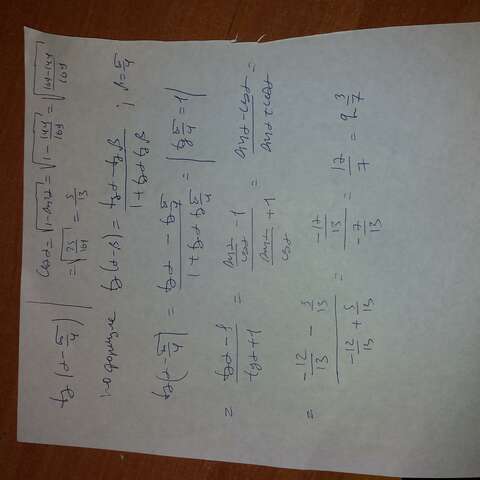 tg(α - π/4) | cosα = √(1 - sin²α) = √(1 - 144/169) = √((169-144)/169)
= √(25/169) = 5/13
по формуле tg(α-β) = (tgα - tgβ)/(1 + tgα tgβ) ; β = π/4
tg(α - π/4) = (tgα - tg π/4)/(1 + tgα tg π/4) = | tg π/4 = 1 |
= (tgα - 1)/(tgα + 1) = (sinα/cosα - 1)/(sinα/cosα + 1) = (sinα - cosα)/(sinα + cosα) =
= (-12/13 - 5/13)/(-12/13 + 5/13) = (-17/13)/(-7/13) = 17/7 = 2 3/7